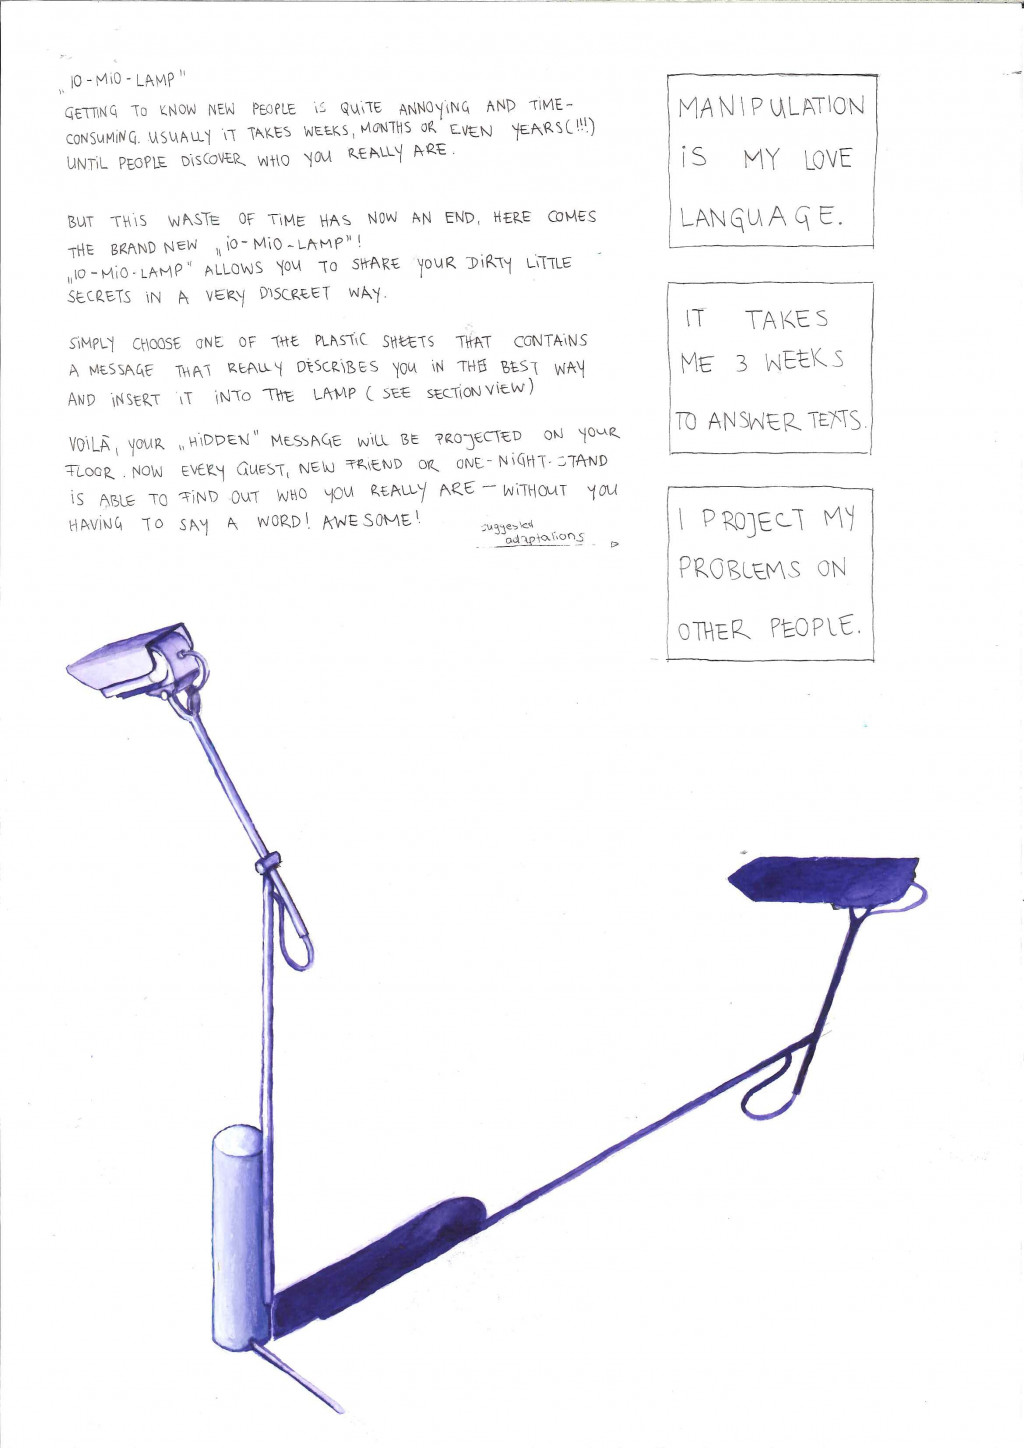 „IO-MIO-LAMP"
GETTING TO KNOW NEW PEOPLE IS QUITE ANNOYING AND TIME-
CONSUMING. USUALLY IT TAKES WEEKS, MONTHS OR EVEN YEARS(!!!)
UNTIL PEOPLE DISCOVER WHO YOU REALLY ARE.
BUT THIS WASTE OF TIME HAS NOW AN END, HERE COMES
THE BRAND NEW „IO-MIO-LAMP"!
„IO-MIO-LAMP" ALLOWS YOU TO SHARE YOUR DIRTY LITTLE
SECRETS IN A VERY DISCREET WAY.
SIMPLY CHOOSE ONE OF THE PLASTIC SHEETS THAT CONTAINS
A MESSAGE THAT REALLY DESCRIBES YOU IN THE BEST WAY
AND INSERT IT INTO THE LAMP (SEE SECTION VIEW)
VOILÀ, YOUR „HIDDEN" MESSAGE WILL BE PROJECTED ON YOUR
FLOOR. NOW EVERY GUEST, NEW FRIEND OR ONE-NIGHT-STAND
IS ABLE TO FIND OUT WHO YOU REALLY ARE – WITHOUT YOU
HAVING TO SAY A WORD! AWESOME!
suggested
adaptations
MANIPULATION
IS MY LOVE
LANGUAGE.
IT TAKES
ME 3 WEEKS
TO ANSWER TEXTS.
I PROJECT MY
PROBLEMS ON
OTHER PEOPLE.